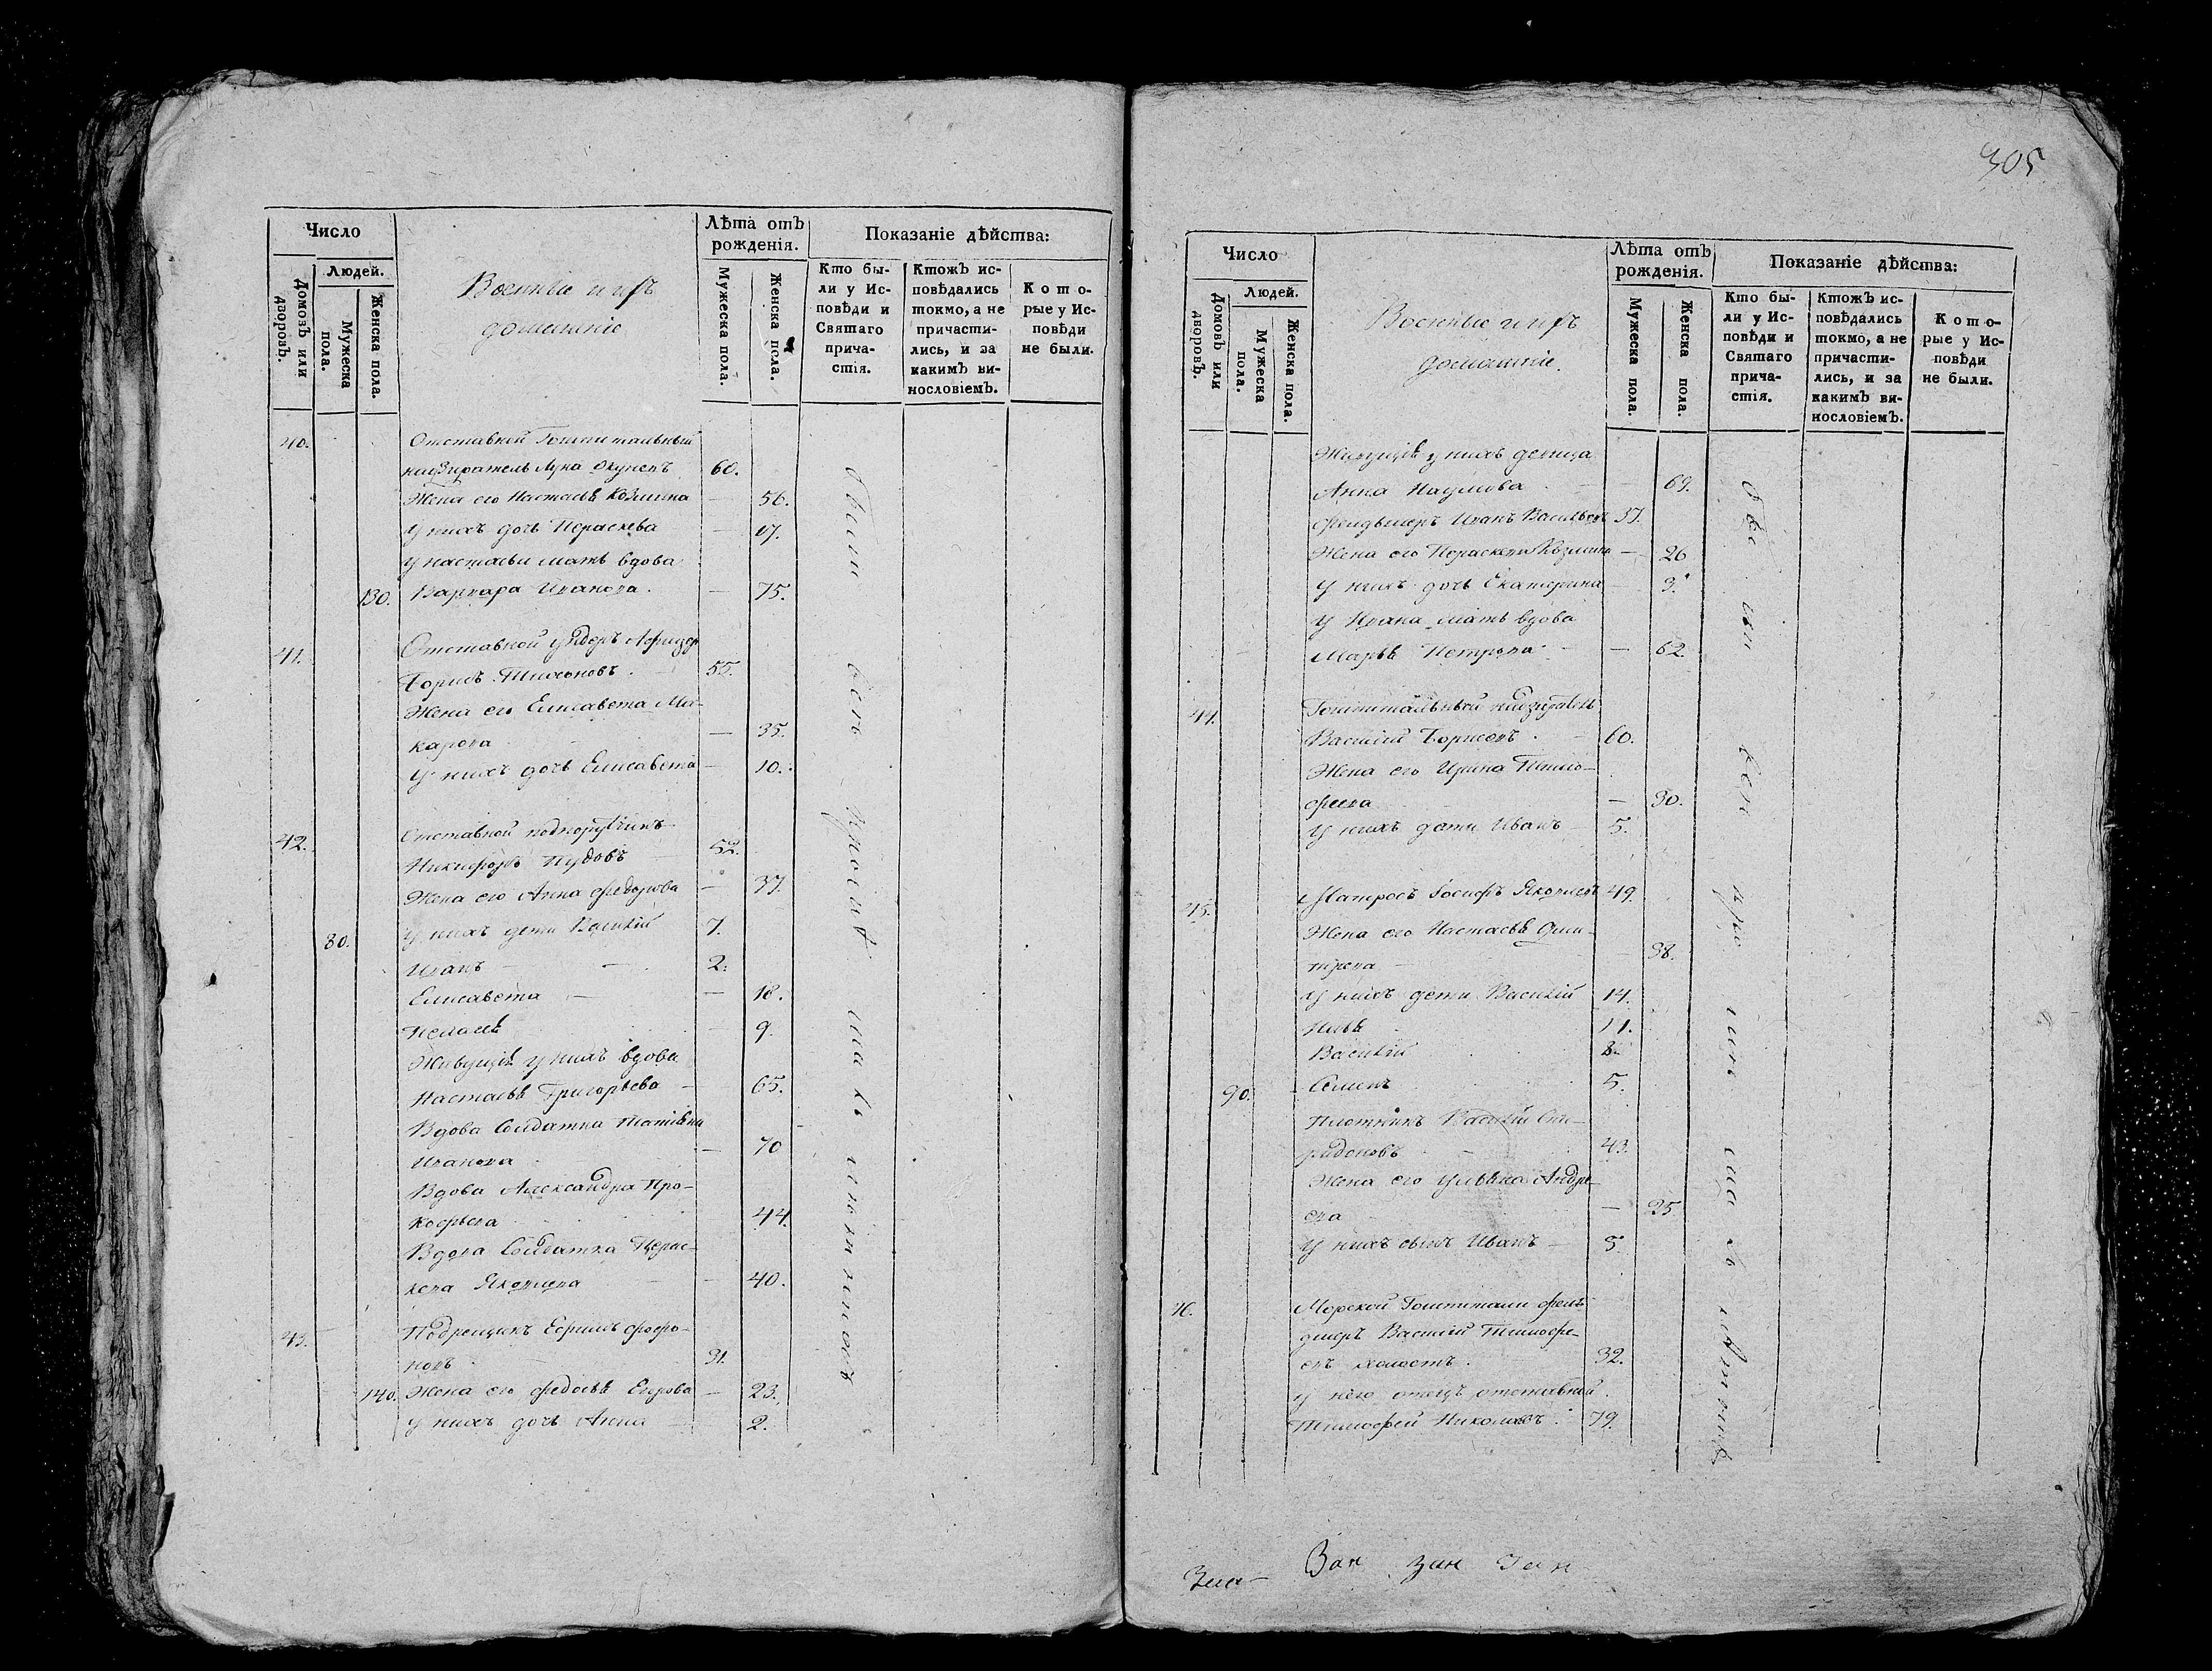 Число
Людей.
Домовъ или дворовъ.
Мужеска пола.
Женска пола.
Военные и ихъ
домашніе
Лѣта отъ
рожденія.
Мужеска пола.
Женска пола.
Показаніе дѣйства:
Кто бы-
ли у Ис-
повѣди и
Святаго
прича-
стія.
Ктожъ ис-
повѣдались
токмо, а не
причасти-
лись, и за
какимъ ви-
нословіемъ.
Кото-
рые у Ис-
повѣди
не были.
40. Отставной Гошпитальный
надзиратель Лука Окуневъ 60.
Жена его Настасья Козмина — 56.
У нихъ дочь Параскева — 17.
У настасьи мать вдова
130. Варвара Иванова. — 75.
41. Отставной ундеръ Афицеръ
Борисъ Тихоновъ. 55.
Жена его Елисавета Ма-
карова — 35.
У нихъ дочь Елисавета — 10.
42. Отставной подпорутчикъ
Никифоръ Пудовъ 52.
Жена его Анна Федорова — 37.
80. У нихъ дети Василій 7.
Иванъ — 2.
Елисавета — 18.
Пелагея — 9.
Живущія у нихъ вдова
Настасья Григорьева — 65.
Вдова Солдатка Татіана
Иванова — 70
Вдова Александра Про-
кофьева 44.
Вдова Солдатка Парас-
кева Яковлева — 40.
43. Подрещикъ Ефимъ Фофо-
новъ 31.
140. Жена его Федосья Егорова — 23.
У нихъ дочь Анна — 2.
305
Число
Людей.
Домовъ или дворовъ.
Мужеска пола.
Женска пола.
Военные и ихъ
домашніе.
Лѣта отъ
рожденія.
Мужеска пола.
Женска пола.
Показаніе дѣйства:
Кто бы-
ли у Ис-
повѣди и
Святаго
прича-
стія.
Ктожъ ис-
повѣдались
токмо, а не
причасти-
лись, и за
какимъ ви-
нословіемъ.
Кото-
рые у Ис-
повѣди
не были.
Живущія у нихъ девица
Анна Наумова — 69.
Фелдьшеръ Иванъ Васильевъ 37.
Жена его Параскева Козмина — 26
У нихъ дочь Екатерина — 3.
У Ивана мать вдова
Марья Петрова — 62.
44. Гошпитальный надзиратель
Василій Борисовъ. 60.
Жена его Ирина Тимо-
феева — 30.
У нихъ дети Иванъ 5.
45. Матросъ Іосифъ Яковлевъ 49.
Жена его Настасья Дми-
трева 38.
У нихъ дети Василій 14.
Илья 11.
Василій 8.
90. Семенъ 5.
Плотникъ Василій Спи-
ридоновъ 43.
Жена его Ульяна Андре-
ева — 35
У нихъ сынъ Иванъ 5.
46. Морской Гошпитали фель-
дшеръ Василій Тимофе-
евъ холостъ. 32.
у него отецъ отставной
Тимофей Николаевъ. 79.